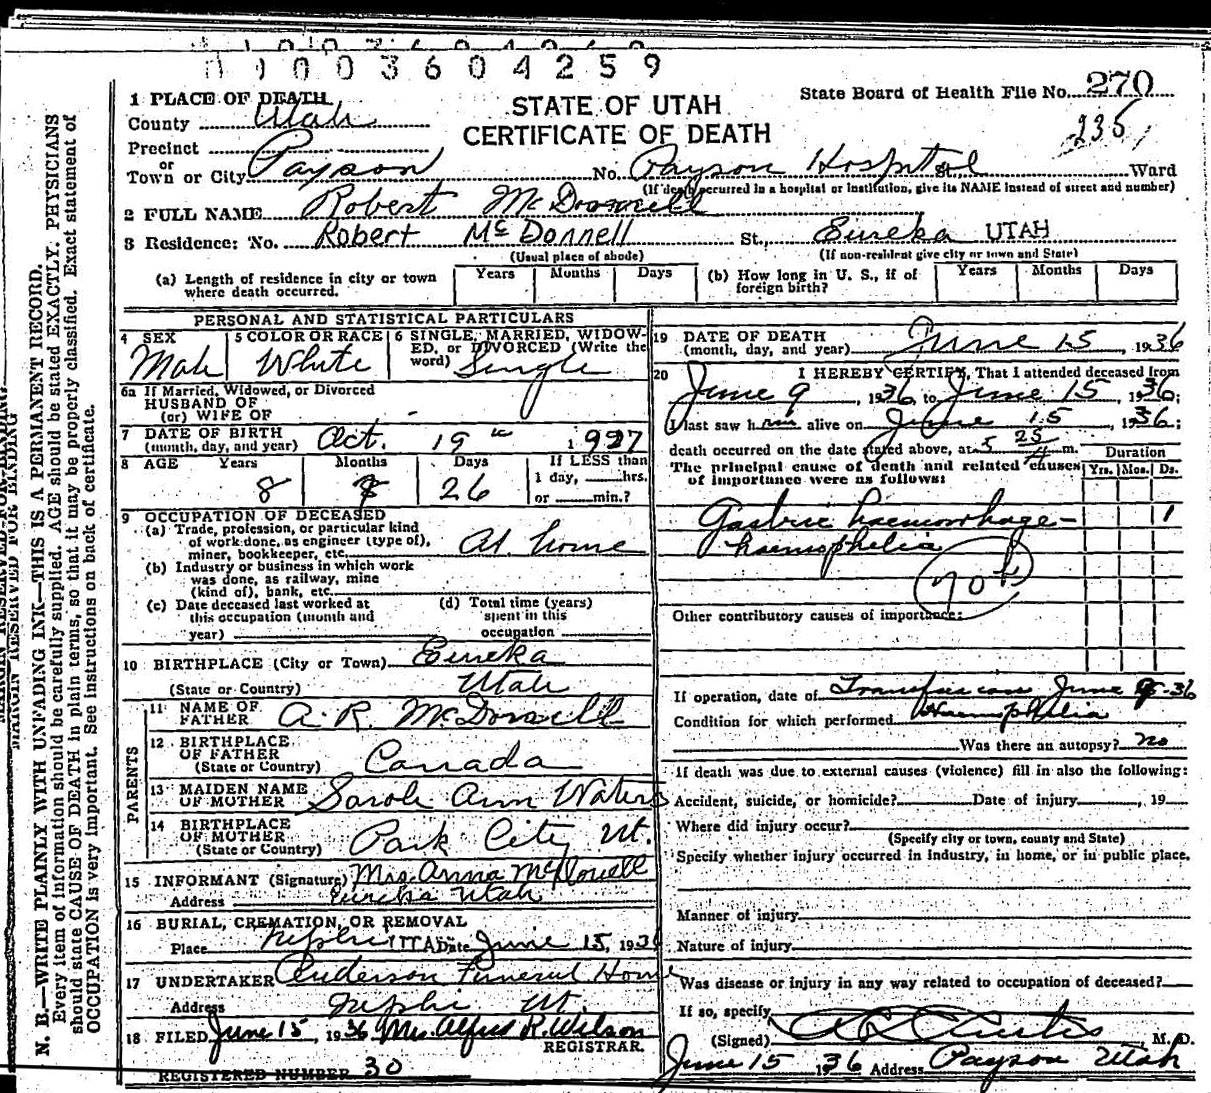 01003604259
State Board of Health File No. 270
235
STATE OF UTAH
CERTIFICATE OF DEATH
1 PLACE OF DEATH
County Utah
Precinct
or
Town or City Payson No. Payson Hospital St., Ward
(If death occurred in a hospital or institution, give its NAME instead of street and number)
2 FULL NAME Robert McDonnell
3 Residence: No. Robert McDonnell St., Eureka UTAH
(Usual place of abode) (If non-resident give city or town and State)
(a) Length of residence in city or town where death occurred. Years Months Days (b) How long in U. S., if of foreign birth? Years Months Days
PERSONAL AND STATISTICAL PARTICULARS
4 SEX
Male
5 COLOR OR RACE
White
6 SINGLE, MARRIED, WIDOWED, or DIVORCED (Write the word) Single
6a If Married, Widowed, or Divorced
HUSBAND OF
(or) WIFE OF -
7 DATE OF BIRTH
(month, day, and year) Oct. 19 1927
8 AGE Years Months Days If LESS than
8 26 1 day, hrs.
or min.?
9 OCCUPATION OF DECEASED
(a) Trade, profession, or particular kind
of work done, as engineer (type of),
miner, bookkeeper, etc. At home
(b) Industry or business in which work
was done, as railway, mine
(kind of), bank, etc.
(c) Date deceased last worked at
this occupation (month and
year)
(d) Total time (years)
spent in this
occupation
10 BIRTHPLACE (City or Town) Eureka
(State or Country) Utah
PARENTS
11 NAME OF
FATHER A. R. McDonnell
12 BIRTHPLACE
OF FATHER
(State or Country) Canada
13 MAIDEN NAME
OF MOTHER Sarah Ann Waters
14 BIRTHPLACE
OF MOTHER
(State or Country) Park City Ut.
15 INFORMANT (Signature) Mrs. Anna
Address Eureka Utah
16 BURIAL, CREMATION, OR REMOVAL
Place Nephi UTAH Date June 15, 1936
17 UNDERTAKER Anderson Funeral Home
Address Nephi Ut.
18 FILED June 15, 1936 Mrs. Alfred R. Wilson
REGISTRAR.
REGISTERED NUMBER 30
19 DATE OF DEATH
(month, day, and year) June 15, 1936
20 I HEREBY CERTIFY, That I attended deceased from
June 9, 1936, to June 15, 1936;
I last saw him alive on June 15 1936;
death occurred on the date stated above, at 5 25 m.
The principal cause of death and related causes
of importance were as follows:
Duration
Yrs. Mos. Ds.
Gastric haemorrhage - 1
haemophelia
Other contributory causes of importance:
If operation, date of Transfusion June 36
Condition for which performed Haemophelia
Was there an autopsy? no
If death was due to external causes (violence) fill in also the following:
Accident, suicide, or homicide? Date of injury , 19
Where did injury occur?
(Specify city or town, county and State)
Specify whether injury occurred in industry, in home, or in public place.
Manner of injury
Nature of injury
Was disease or injury in any way related to occupation of deceased?
If so, specify
(Signed) Curtis M. D.
June 15 1936 Address Payson Utah
MARGIN RESERVED FOR BINDING
N. B.—WRITE PLAINLY WITH UNFADING INK—THIS IS A PERMANENT RECORD.
Every item of information should be carefully supplied. AGE should be stated EXACTLY. PHYSICIANS
should state CAUSE OF DEATH in plain terms, so that it may be properly classified. Exact statement of
OCCUPATION is very important. See instructions on back of certificate.